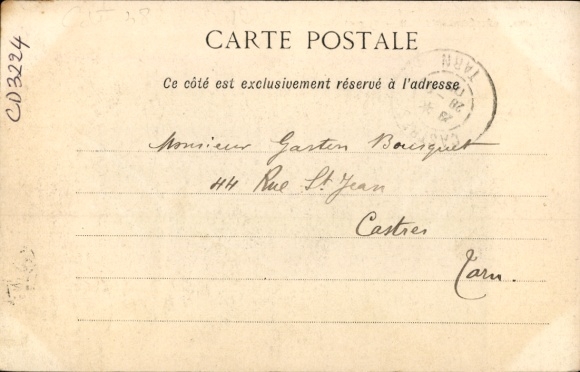 CD3224
CARTE POSTALE
Ce côté est exclusivement réservé à l'adresse
CASTRES
TARN
Monsieur Gaston Bousquet
44 Rue St Jean
Castres
Tarn.